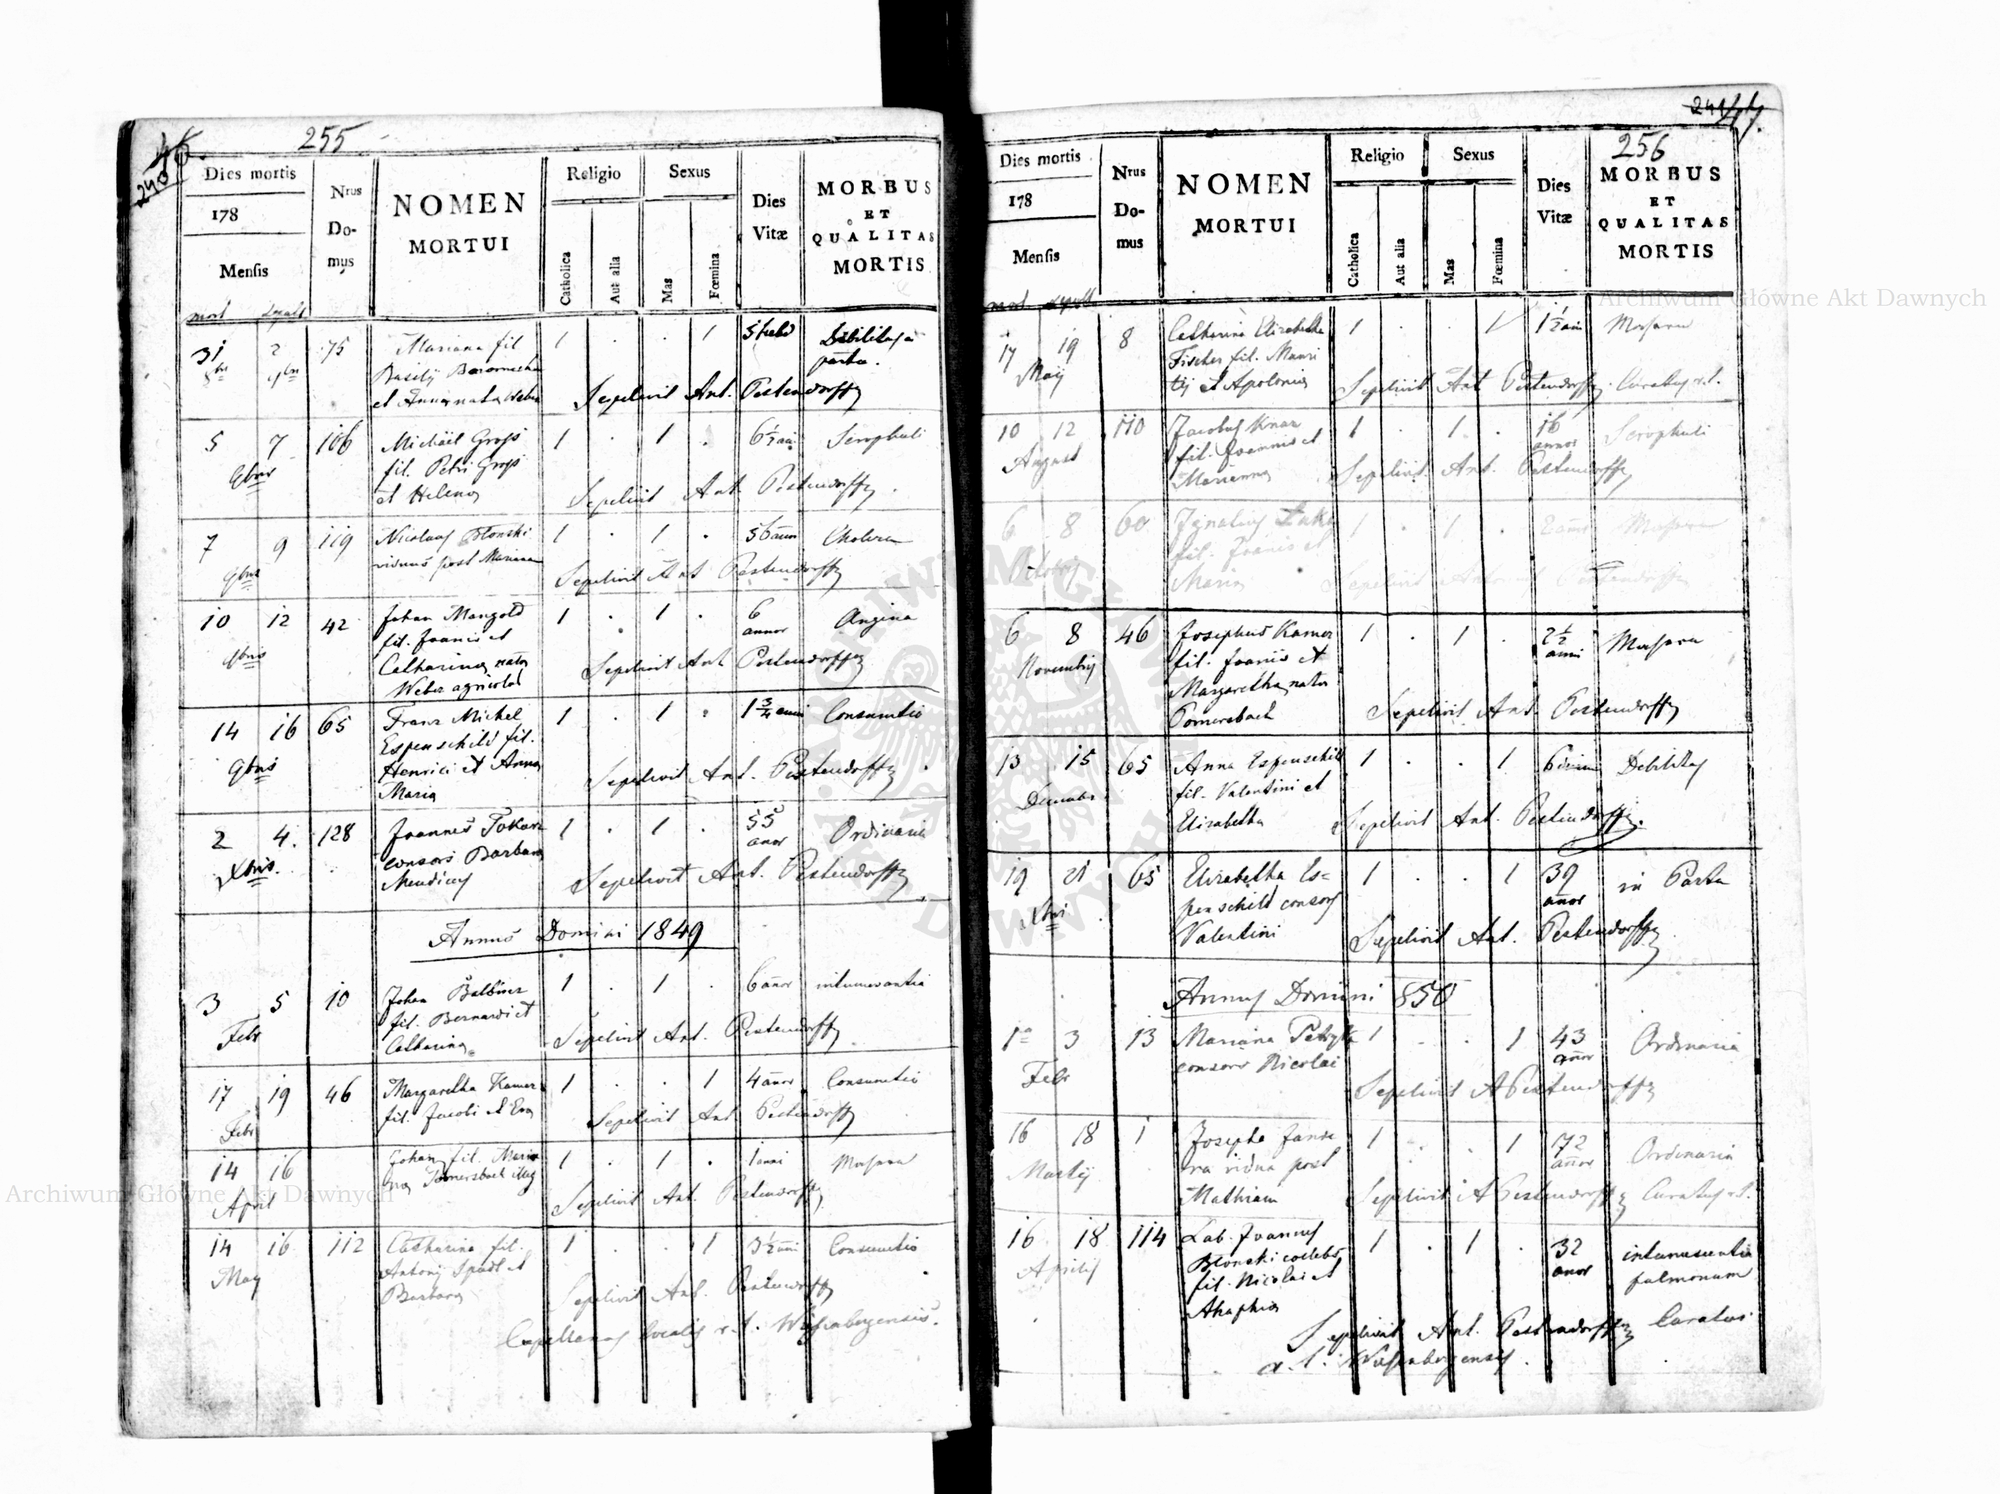 46.
240
255
Dies mortis
178
Mensis
Nrus Domus
NOMEN
MORTUI
Religio
Catholica
Aut alia
Sexus
Mas
Fœmina
Dies
Vitæ
MORBUS
ET
QUALITAS
MORTIS
mort sepult
31 2 75 Mariana fil 1 . . 1 Debilitas a
8bri 9bri Basilij partu.
et Anna nata Weber Sepelivit Ant. Pestendorffy
5 7 106 Michäel Gross 1 . 1 . 6 1/2 ani Scrophuli
9bris fil. Petri Gross
et Helena Sepelivit Ant. Pestendorffy.
7 9 119 Nicolaus Blonski 1 . 1 . 56 anor Cholera
9bris viduus post Mariana Sepelivit Ant Pestendorffy
10 12 42 Johan Mangold 1 . 1 . 6 annor Angina
9bris fil. Joanis et
Catharina nata Sepelivit Ant Pestendorffy
Weber agricola
14 16 65 Franz Michel 1 . 1 . 1 3/4 anni Consumtio
Espenschild fil.
9bris Henrici et Anna Sepelivit Ant. Pestendorffy.
Maria
2 4. 128 Joannes Tokarz 1 . 1 . 55 anor Ordinaria
Xbris. consors Barbara
Mendicus Sepelivit Ant. Pestendorffy
Annus Domini 1849
3 5 10 Johan 1 . 1 . 6 anor intumescentia
Febr fil. Bernardi et
Catharina Sepelivit Ant. Pestendorffy
17 19 46 Margaretha Kamer 1 . . 1 4 anor Consumtio
Febr fil. Jacobi et Eva Sepelivit Ant Pestendorffy
14 16 Johan fil. Maria 1 . 1 . 1 anni
April na Pomersbach illeg Sepelivit Ant. Pestendorffy
14 16 112 Catharina fil. 1 . . 1 3 1/2 ani Consumtio
May Antonij Spadl et
Barbara Sepelivit Ant. Pestendorffy
Capellanus localis r. l. Weissenbergensis.
241
47.
256
Dies mortis
178
Mensis
Nrus Domus
NOMEN
MORTUI
Religio
Catholica
Aut alia
Sexus
Mas
Fœmina
Dies
Vitæ
MORBUS
ET
QUALITAS
MORTIS
mort sepult
17 19 8 Catharina Elizabetha 1 . . 1 1 1/2 ani
May Fischer fil. Mauri
tij et Apolonia Sepelivit Ant Pestendorffy. Curatus r. l.
10 12 110 Jacobus Knar 1 . 1 . 16 annor Scrophuli
August fil. Joannis et
Marianna Sepelivit Ant. Pestendorffy
6 8 60 Ignatius 1 . 1 .
fil. Joanis et
Maria Sepelivit Pestendorffy
6 8 46 Josephus Kamer 1 . 1 . 2 1/2 anni
Novembris fil. Joanis et
Margaretha nata
Pomersbach Sepelivit Ant. Pestendorffy
13 15 65 Anna Espenschild 1 . . 1 Debilitas
Decembr. fil. Valentini et
Elizabetha Sepelivit Ant. Pestendorffy.
19 21 65 Elizabetha Es= 1 . . 1 39 anor in Partu
Xbris penschild consors
Valentini Sepelivit Ant. Pestendorffy
Annus Domini 850
1a 3 13 Mariana 1 . . 1 43 anor Ordinaria
Febr consors Nicolai
Sepelivit A Pestendorffy
16 18 1 Josepha Janse 1 . . 1 72 anor Ordinaria
Martij na vidua post
Mathiam Sepelivit A Pestendorffy Curatus r. l.
16 18 114 Lab. Joannes 1 . 1 . 32 anor intumescentia
Aprilis Blonski coelebs pulmonum
fil. Nicolai et
Ahaphia
Sepelivit Ant. Pestendorffy Curatus
r. l. Weissenbergensis.
Archiwum Główne Akt Dawnych
Archiwum Główne Akt Dawnych
ARCHIWUM GŁÓWNE AKT DAWNYCH